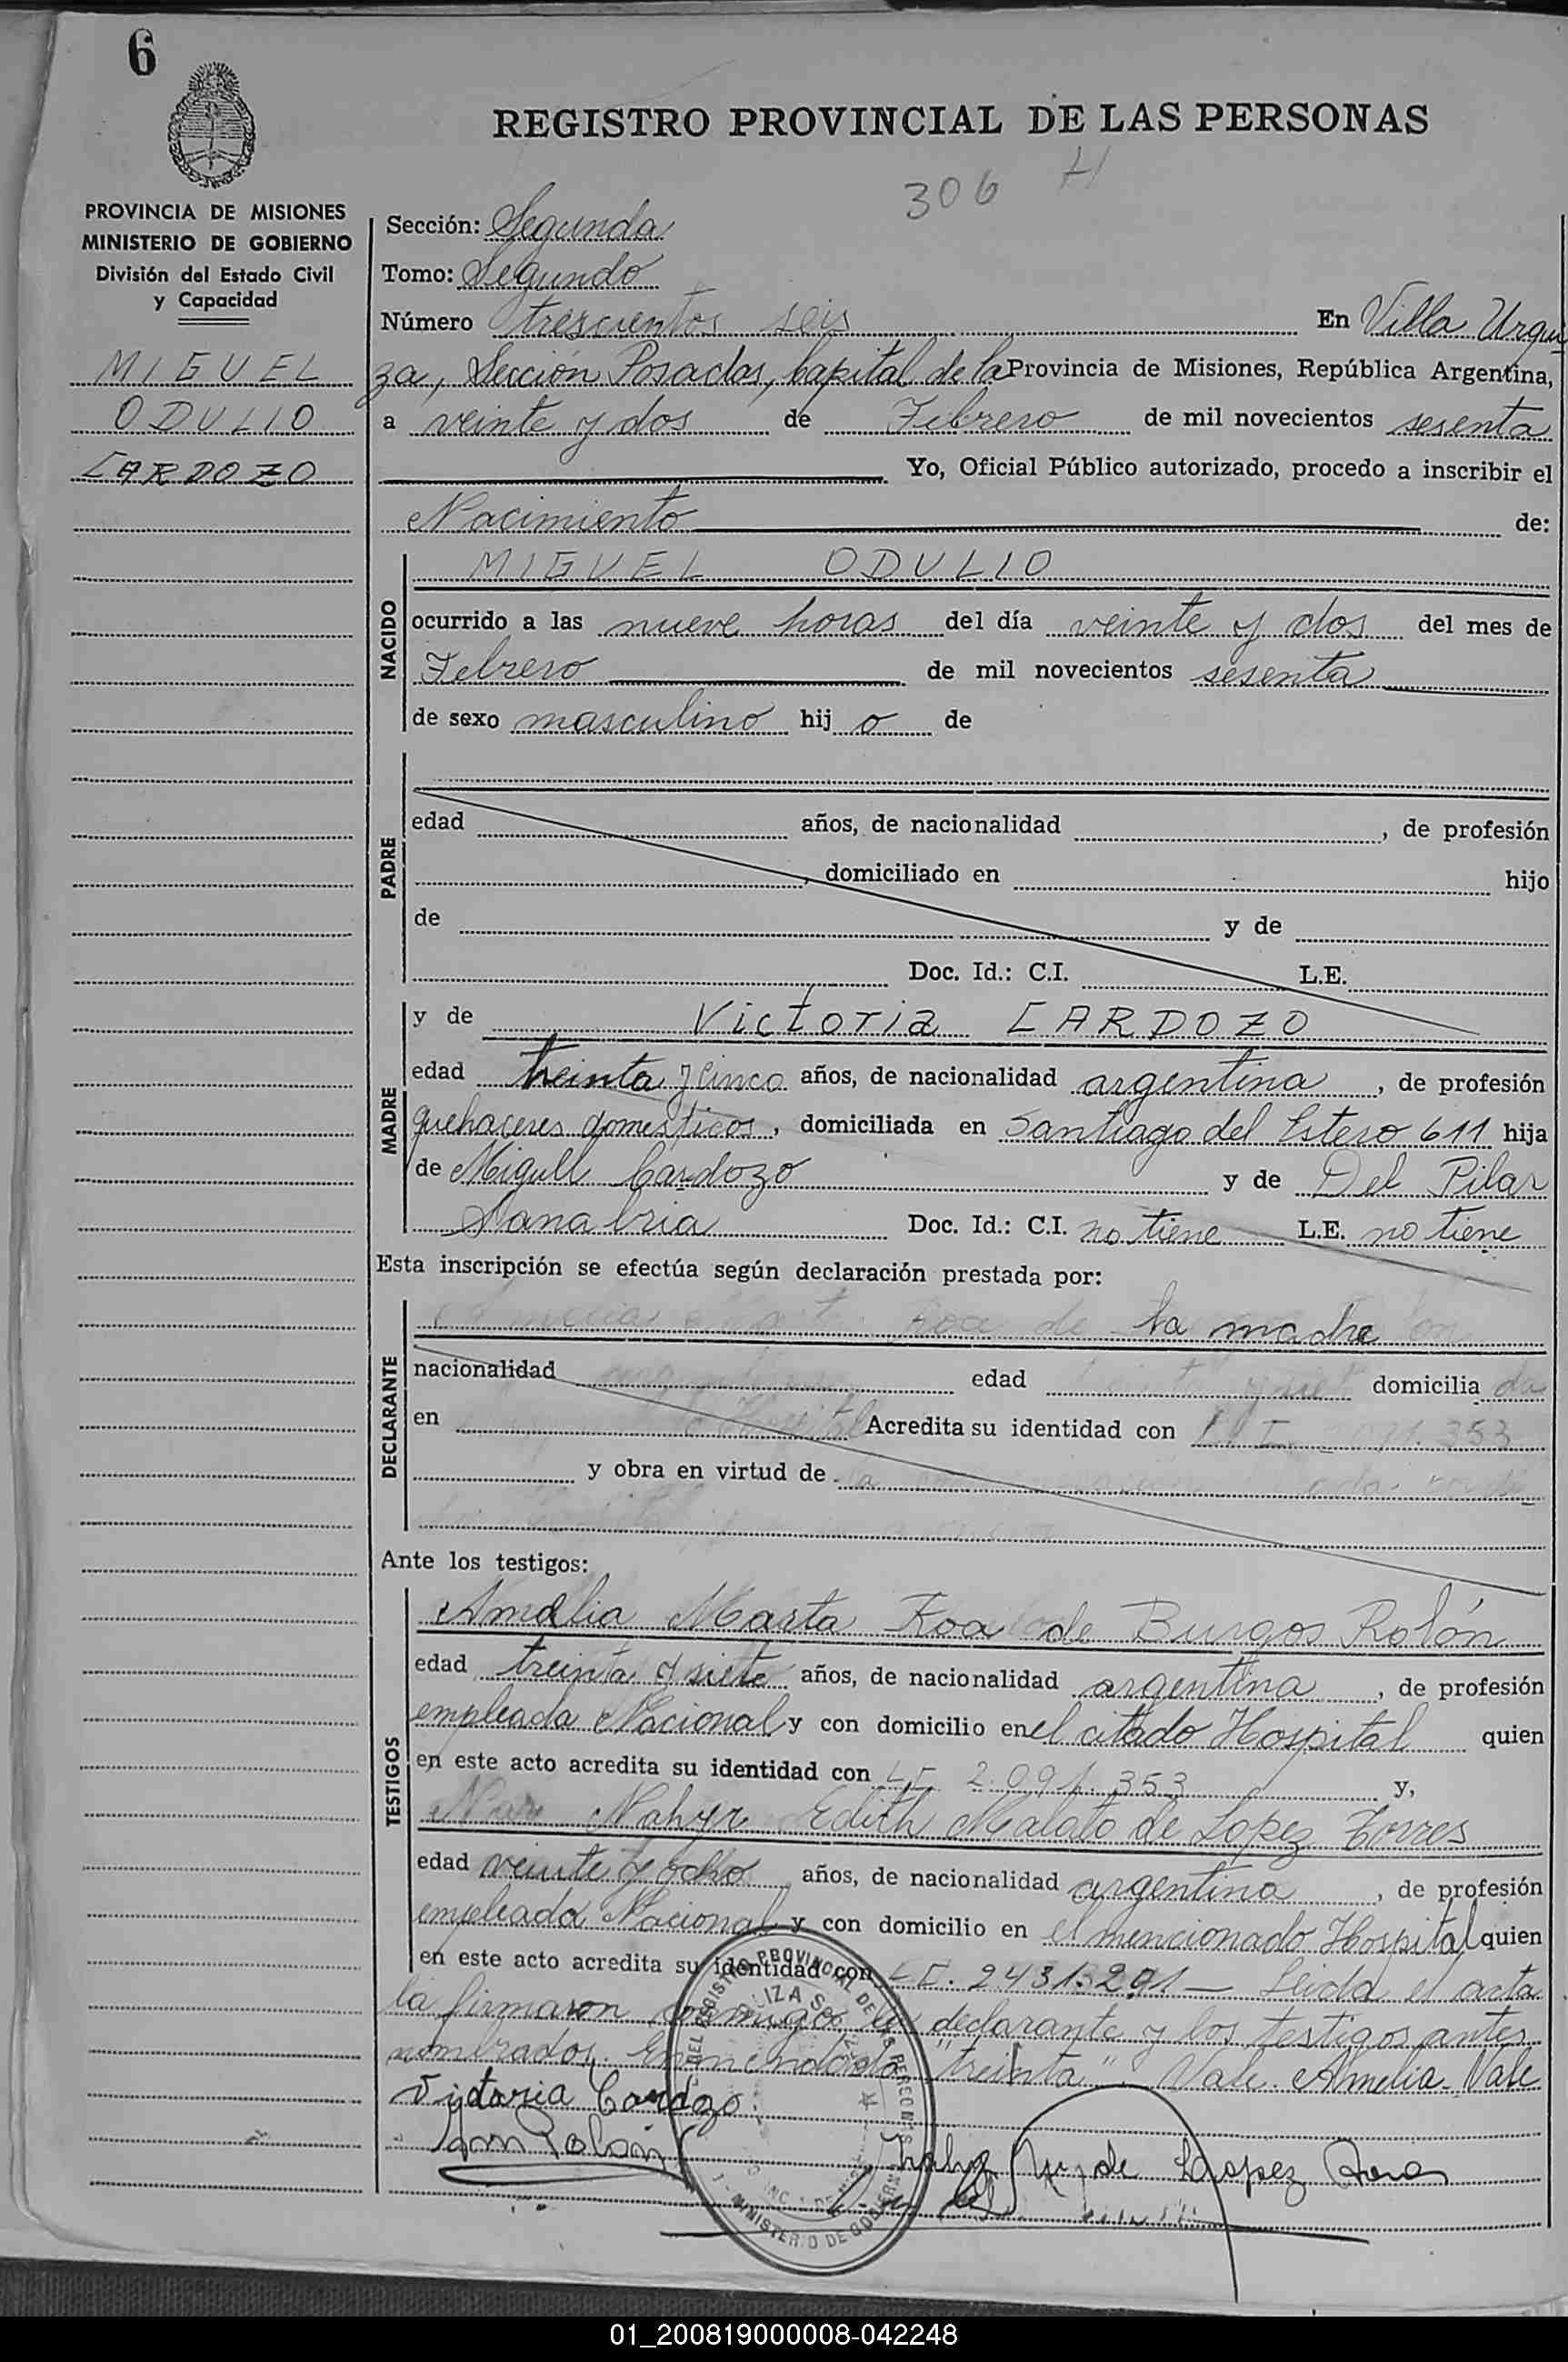 6
REGISTRO PROVINCIAL DE LAS PERSONAS
306 H
PROVINCIA DE MISIONES
MINISTERIO DE GOBIERNO
División del Estado Civil
y Capacidad
MIGUEL
ODULIO
CARDOZO
Sección: Segunda
Tomo: Segundo
Número trescientos seis En Villa Urqui
za, Sección Posadas, Capital de la Provincia de Misiones, República Argentina,
a veinte y dos de Febrero de mil novecientos sesenta
Yo, Oficial Público autorizado, procedo a inscribir el
Nacimiento de:
NACIDO
MIGUEL ODULIO
ocurrido a las nueve horas del día veinte y dos del mes de
Febrero de mil novecientos sesenta
de sexo masculino hij o de
PADRE
edad años, de nacionalidad , de profesión
, domiciliado en hijo
de y de
Doc. Id.: C.I. L.E.
MADRE
y de Victoria CARDOZO
edad treinta y cinco años, de nacionalidad argentina , de profesión
quehaceres domesticos , domiciliada en Santiago del Estero 611 hija
de Miguel Cardozo y de Del Pilar
Sanabria Doc. Id.: C.I. no tiene L.E. no tiene
Esta inscripción se efectúa según declaración prestada por:
DECLARANTE
la madre
nacionalidad edad domicilia da
en Acredita su identidad con 353
y obra en virtud de la
Ante los testigos:
TESTIGOS
Amelia Marta Roa de Burgos Rolón
edad treinta y siete años, de nacionalidad argentina , de profesión
empleada Nacional y con domicilio en el citado Hospital quien
en este acto acredita su identidad con 353 y,
Nahyr Edith Malato de Lopez Torres
edad veinte y ocho años, de nacionalidad argentina , de profesión
empleada Nacional y con domicilio en el mencionado Hospital quien
en este acto acredita su identidad con L.C. 2431.291 — Leida el acta
la firmaron conmigo la declarante y los testigos antes
nombrados. Enmendado "treinta". Vale. Amelia. Vale
Victoria Cardozo.
Rolon
de Lopez
REGISTRO PROVINCIAL DE LAS PERSONAS
MINISTERIO DE GOBIERNO
01_200819000008-042248